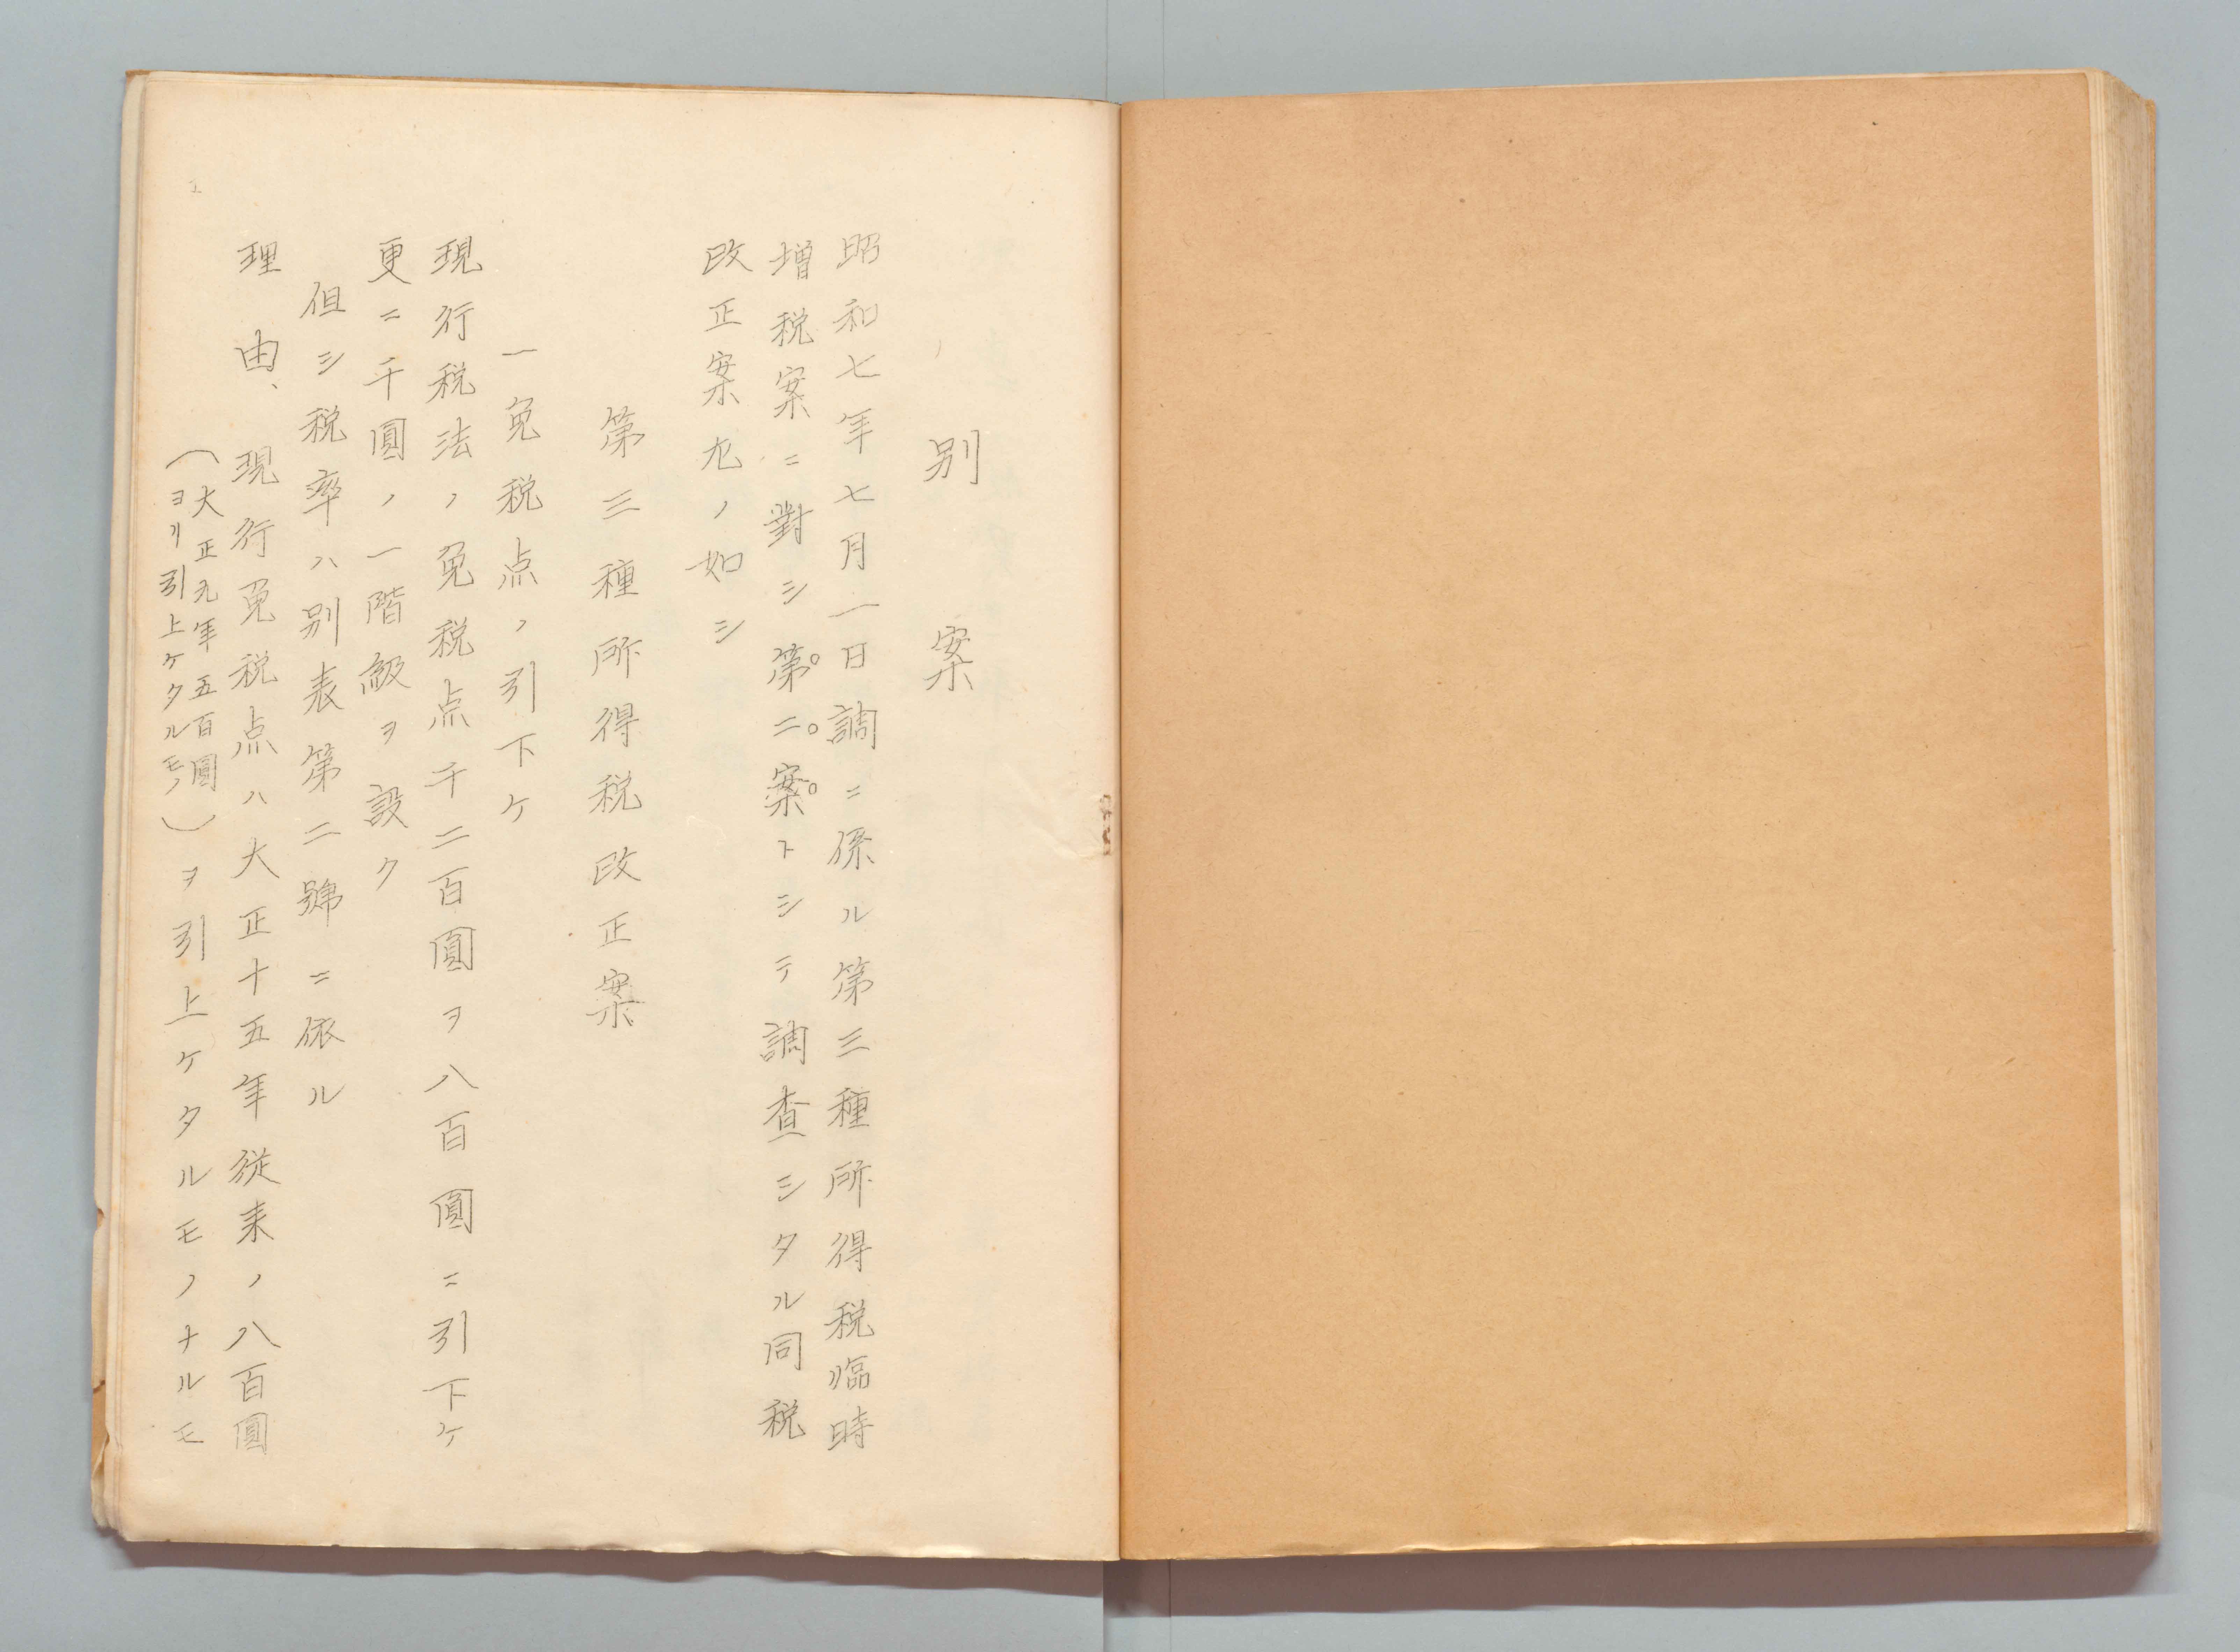 別案
昭和七年七月一日調ニ係ル第三種所得税臨時
増税案ニ對シ第二案トシテ調査シタル同税
改正案左ノ如シ
第三種所得税改正案
一免税点ノ引下ケ
現行税法ノ免税点千二百圓ヲ八百圓ニ引下ケ
更ニ千圓ノ一階級ヲ設ク
但シ税率ハ別表第二號ニ依ル
理由、現行免税点ハ大正十五年従来ノ八百圓
(大正九年五百圓
ヨリ引上ケタルモノ)ヲ引上ケタルモノナルモ